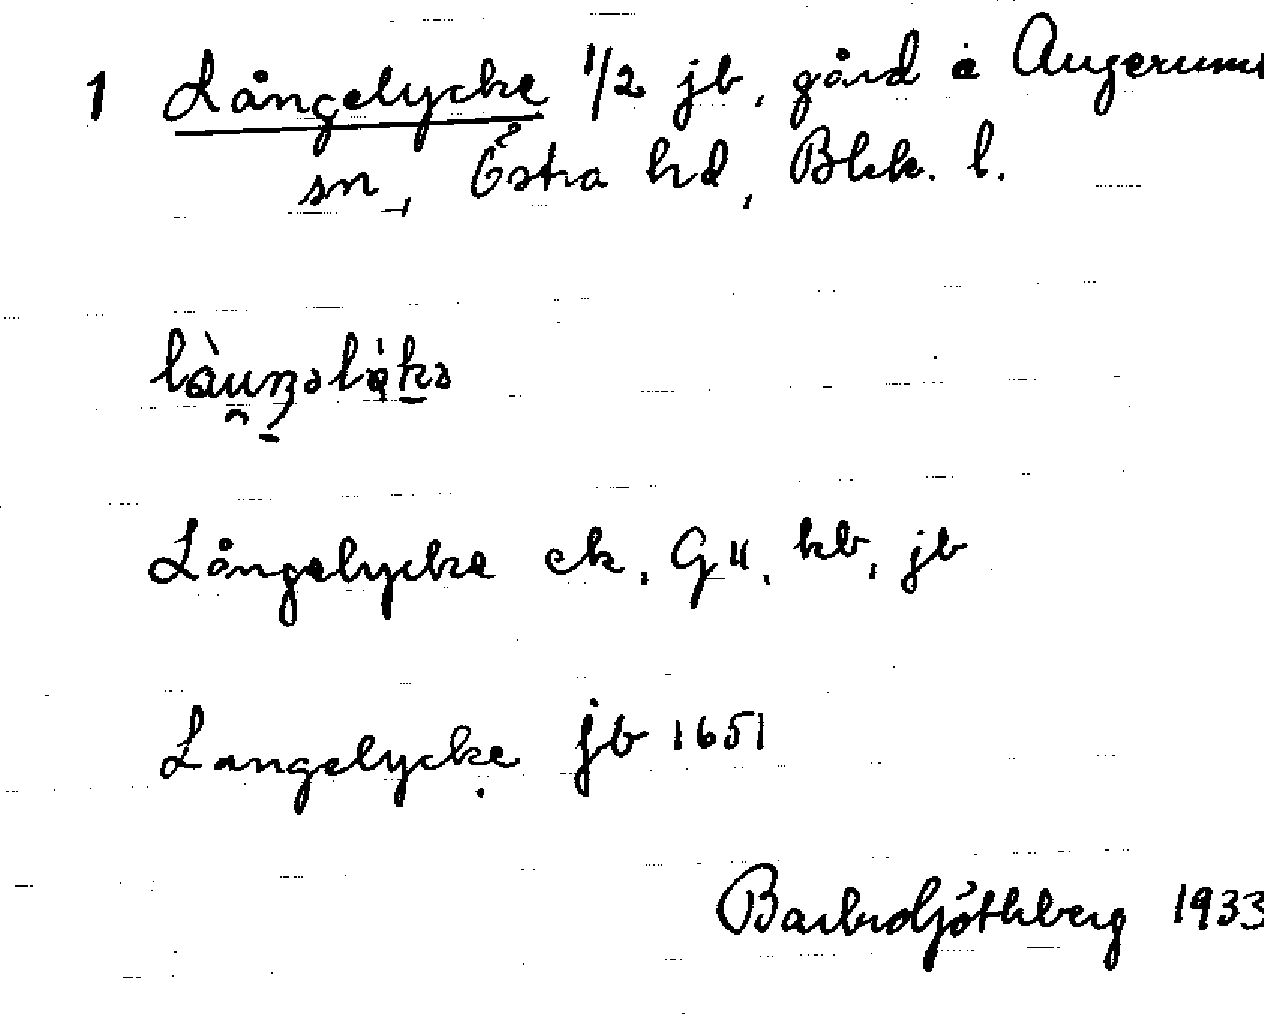 1 Långelycke 1/2 jb, gård i Augerums
sn, Östra hd, Blek. l.
Långelycke ek, GU, kb, jb
Langelycke jb 1651
Barbro Göthberg 1933